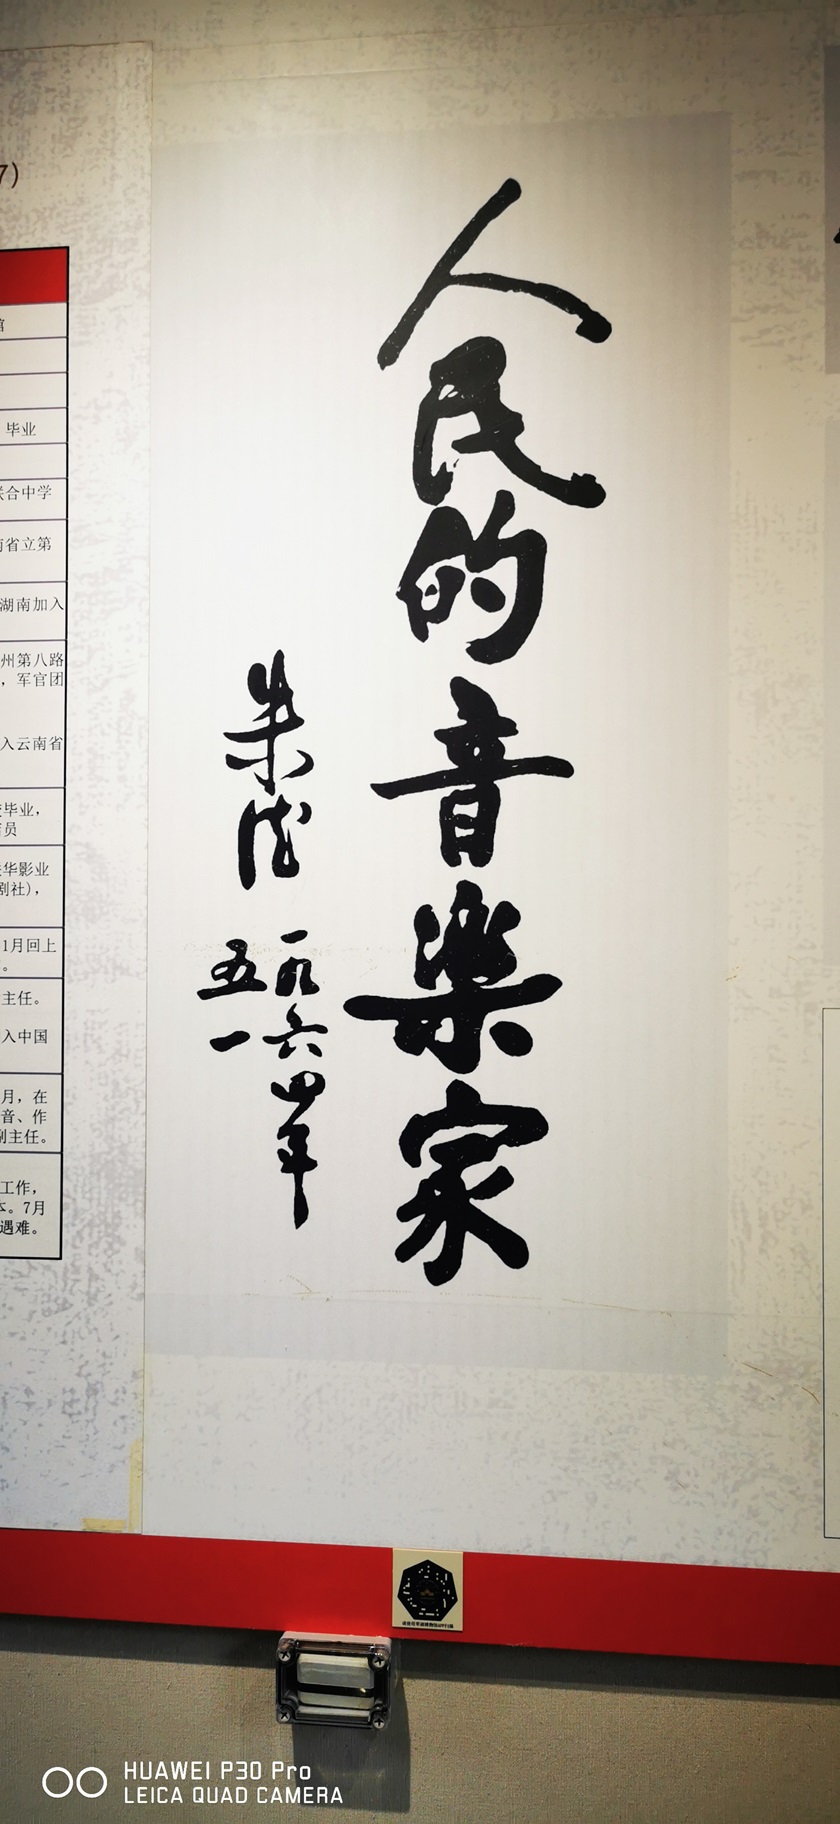 人民的音樂家
朱德
一九六四年
五一
7)
馆
毕业
联合中学
南省立第
湖南加入
州第八路
，军官团
入云南省
毕业，
员
华影业
剧社)，
1月回上
。
主任。
入中国
月，在
音、作
副主任。
工作，
本。7月
遇难。
HUAWEI P30 Pro
LEICA QUAD CAMERA